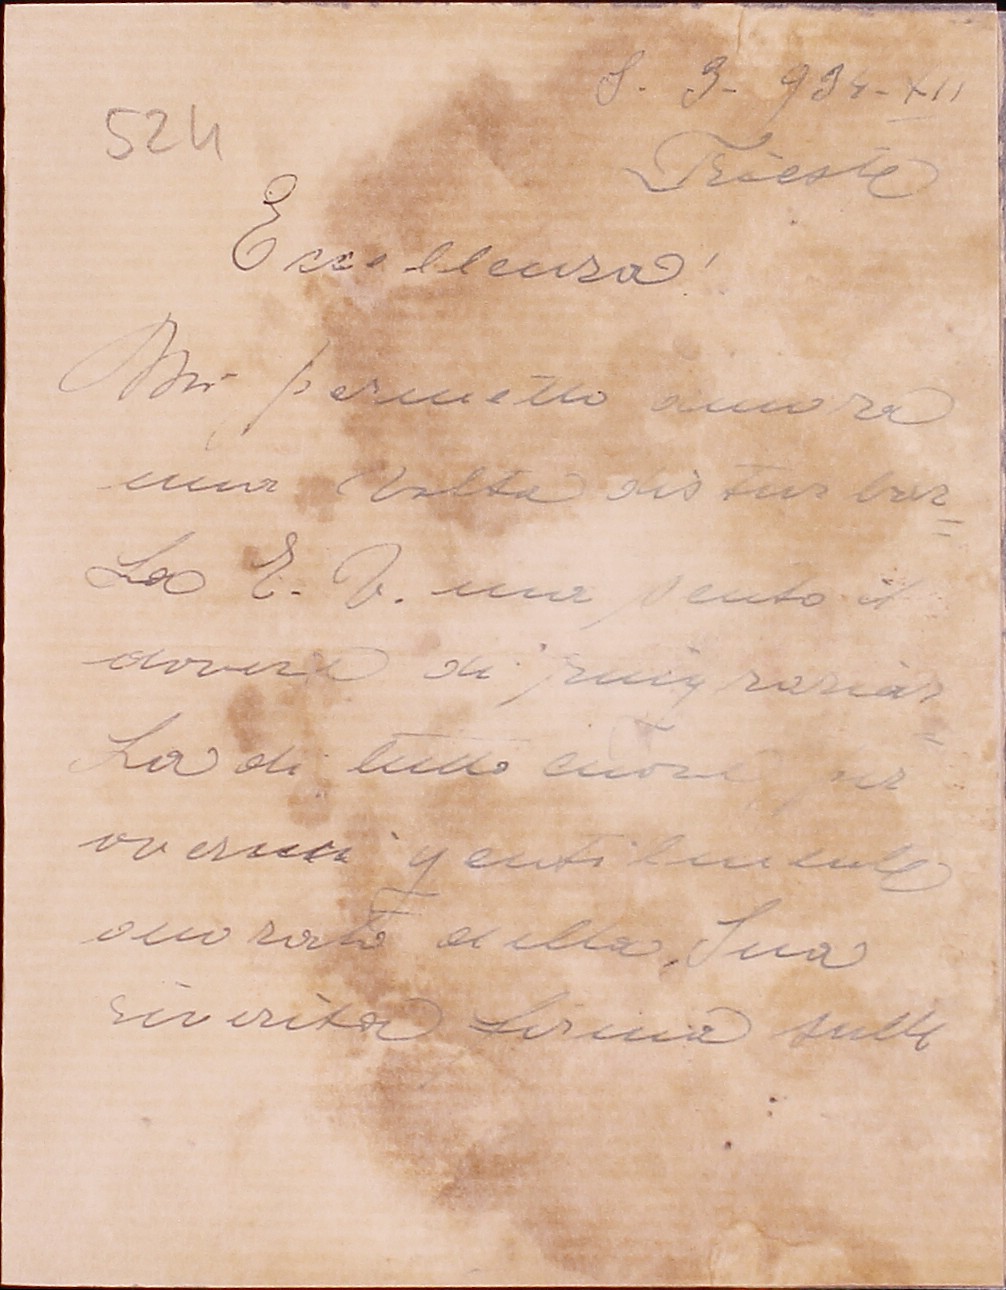 8. 3- 934-XII
524
Trieste
Eccellenza!
Mi permetto ancora
una volta distur bar=
La E. V. ma sento il
dovere di ringraziar=
La di tutto cuore, per
avermi gentilmente
onorato della Sua
riverita firma sulle